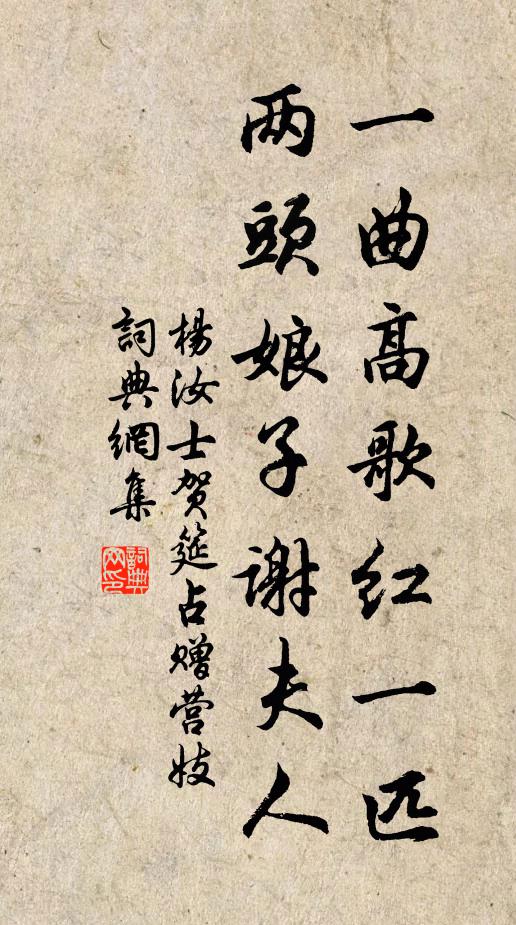 一曲高歌红一匹
两頭娘子谢夫人
楊汝士贺筵占赠营妓
詞典網集
詞典网印